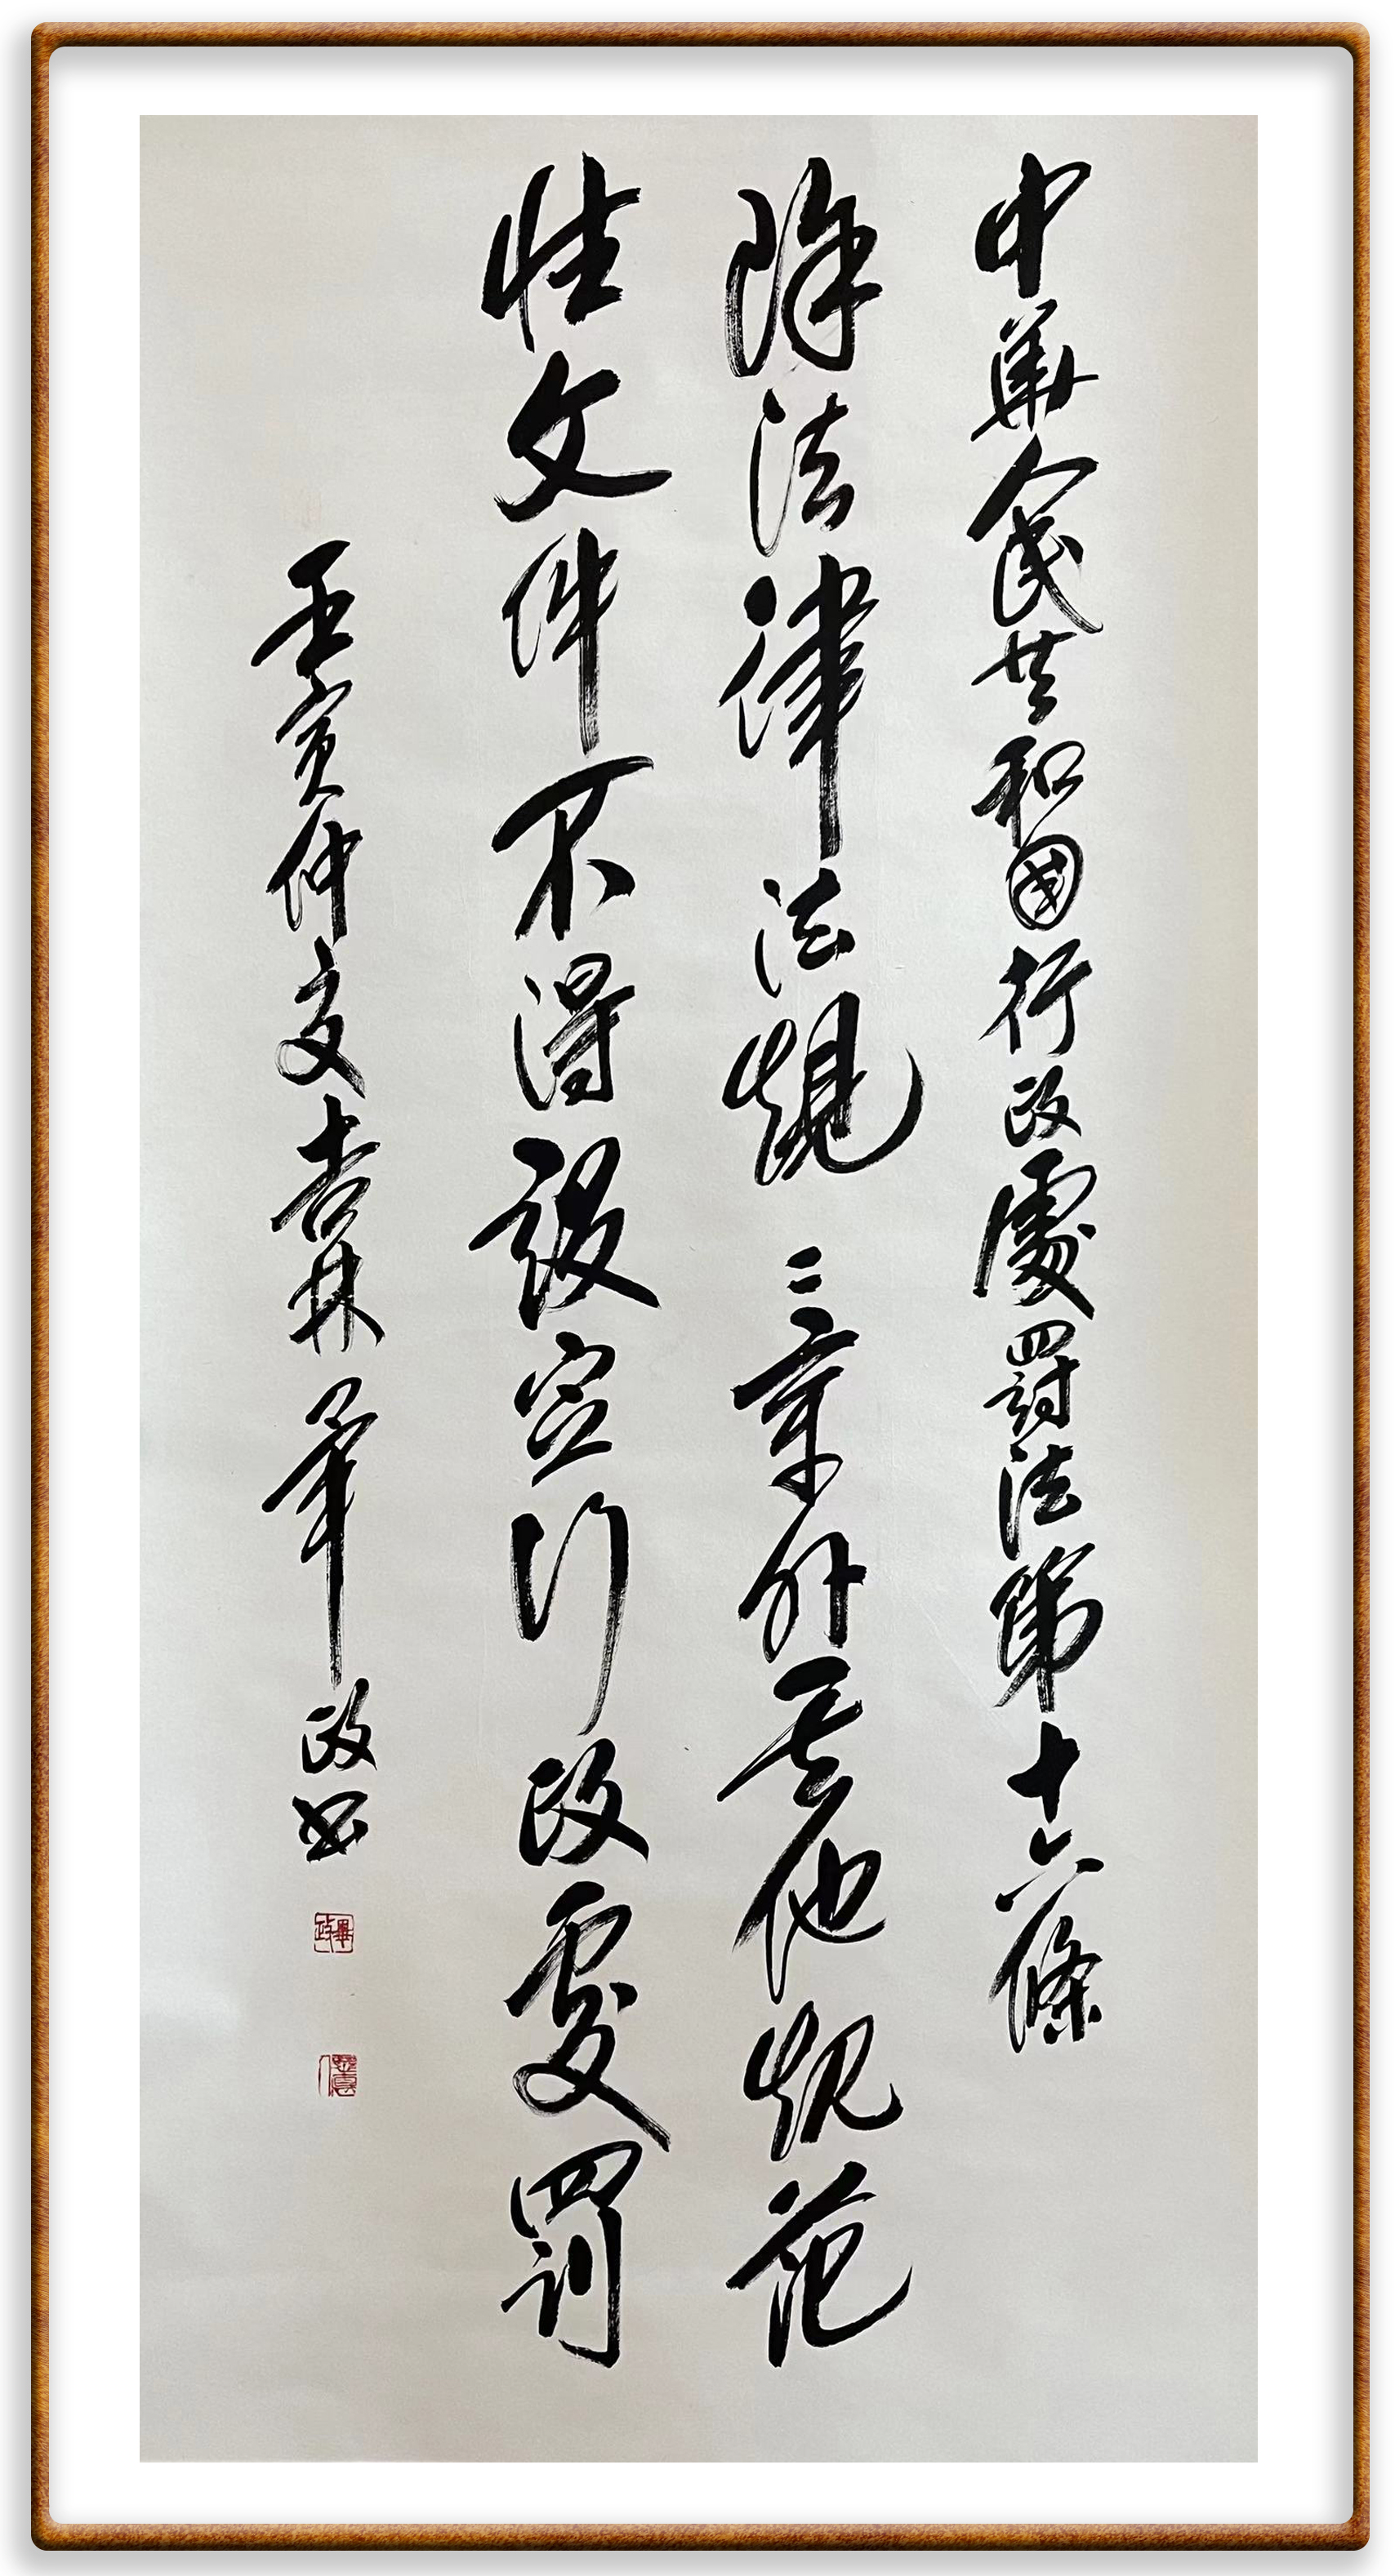 中華人民共和國行政處罰法第十六條
除法律法規〻章外其他規范
性文件不得設定行政處罰
壬寅仲夏吉林畢政書
畢政